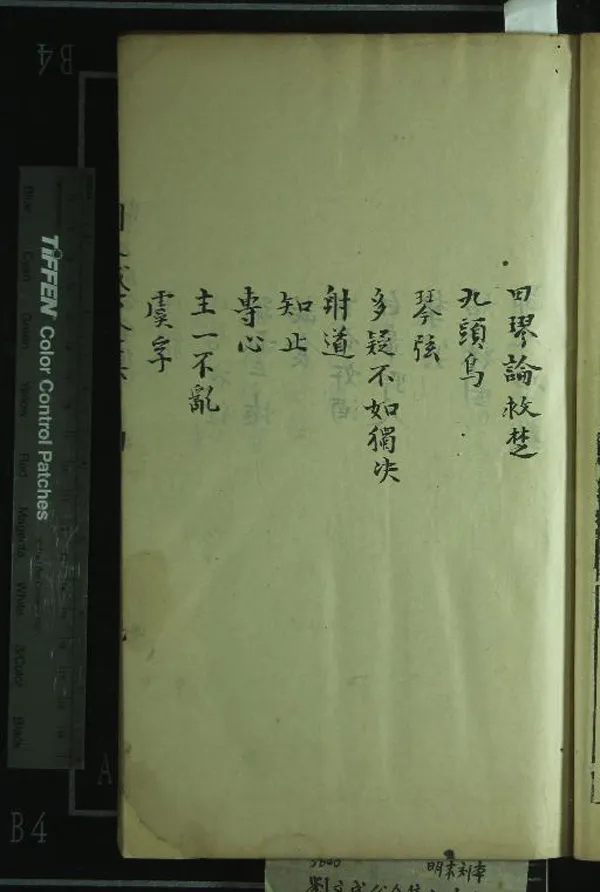 田璆論救楚
九頭鳥
琴弦
多疑不如獨决
射道
知止
專心
主一不亂
虞孚
B4
TIFFEN Color Control Patches
Blue
Cyan
Green
Yellow
Red
Magenta
White
3/Color
Black
A
B4
明末刻本